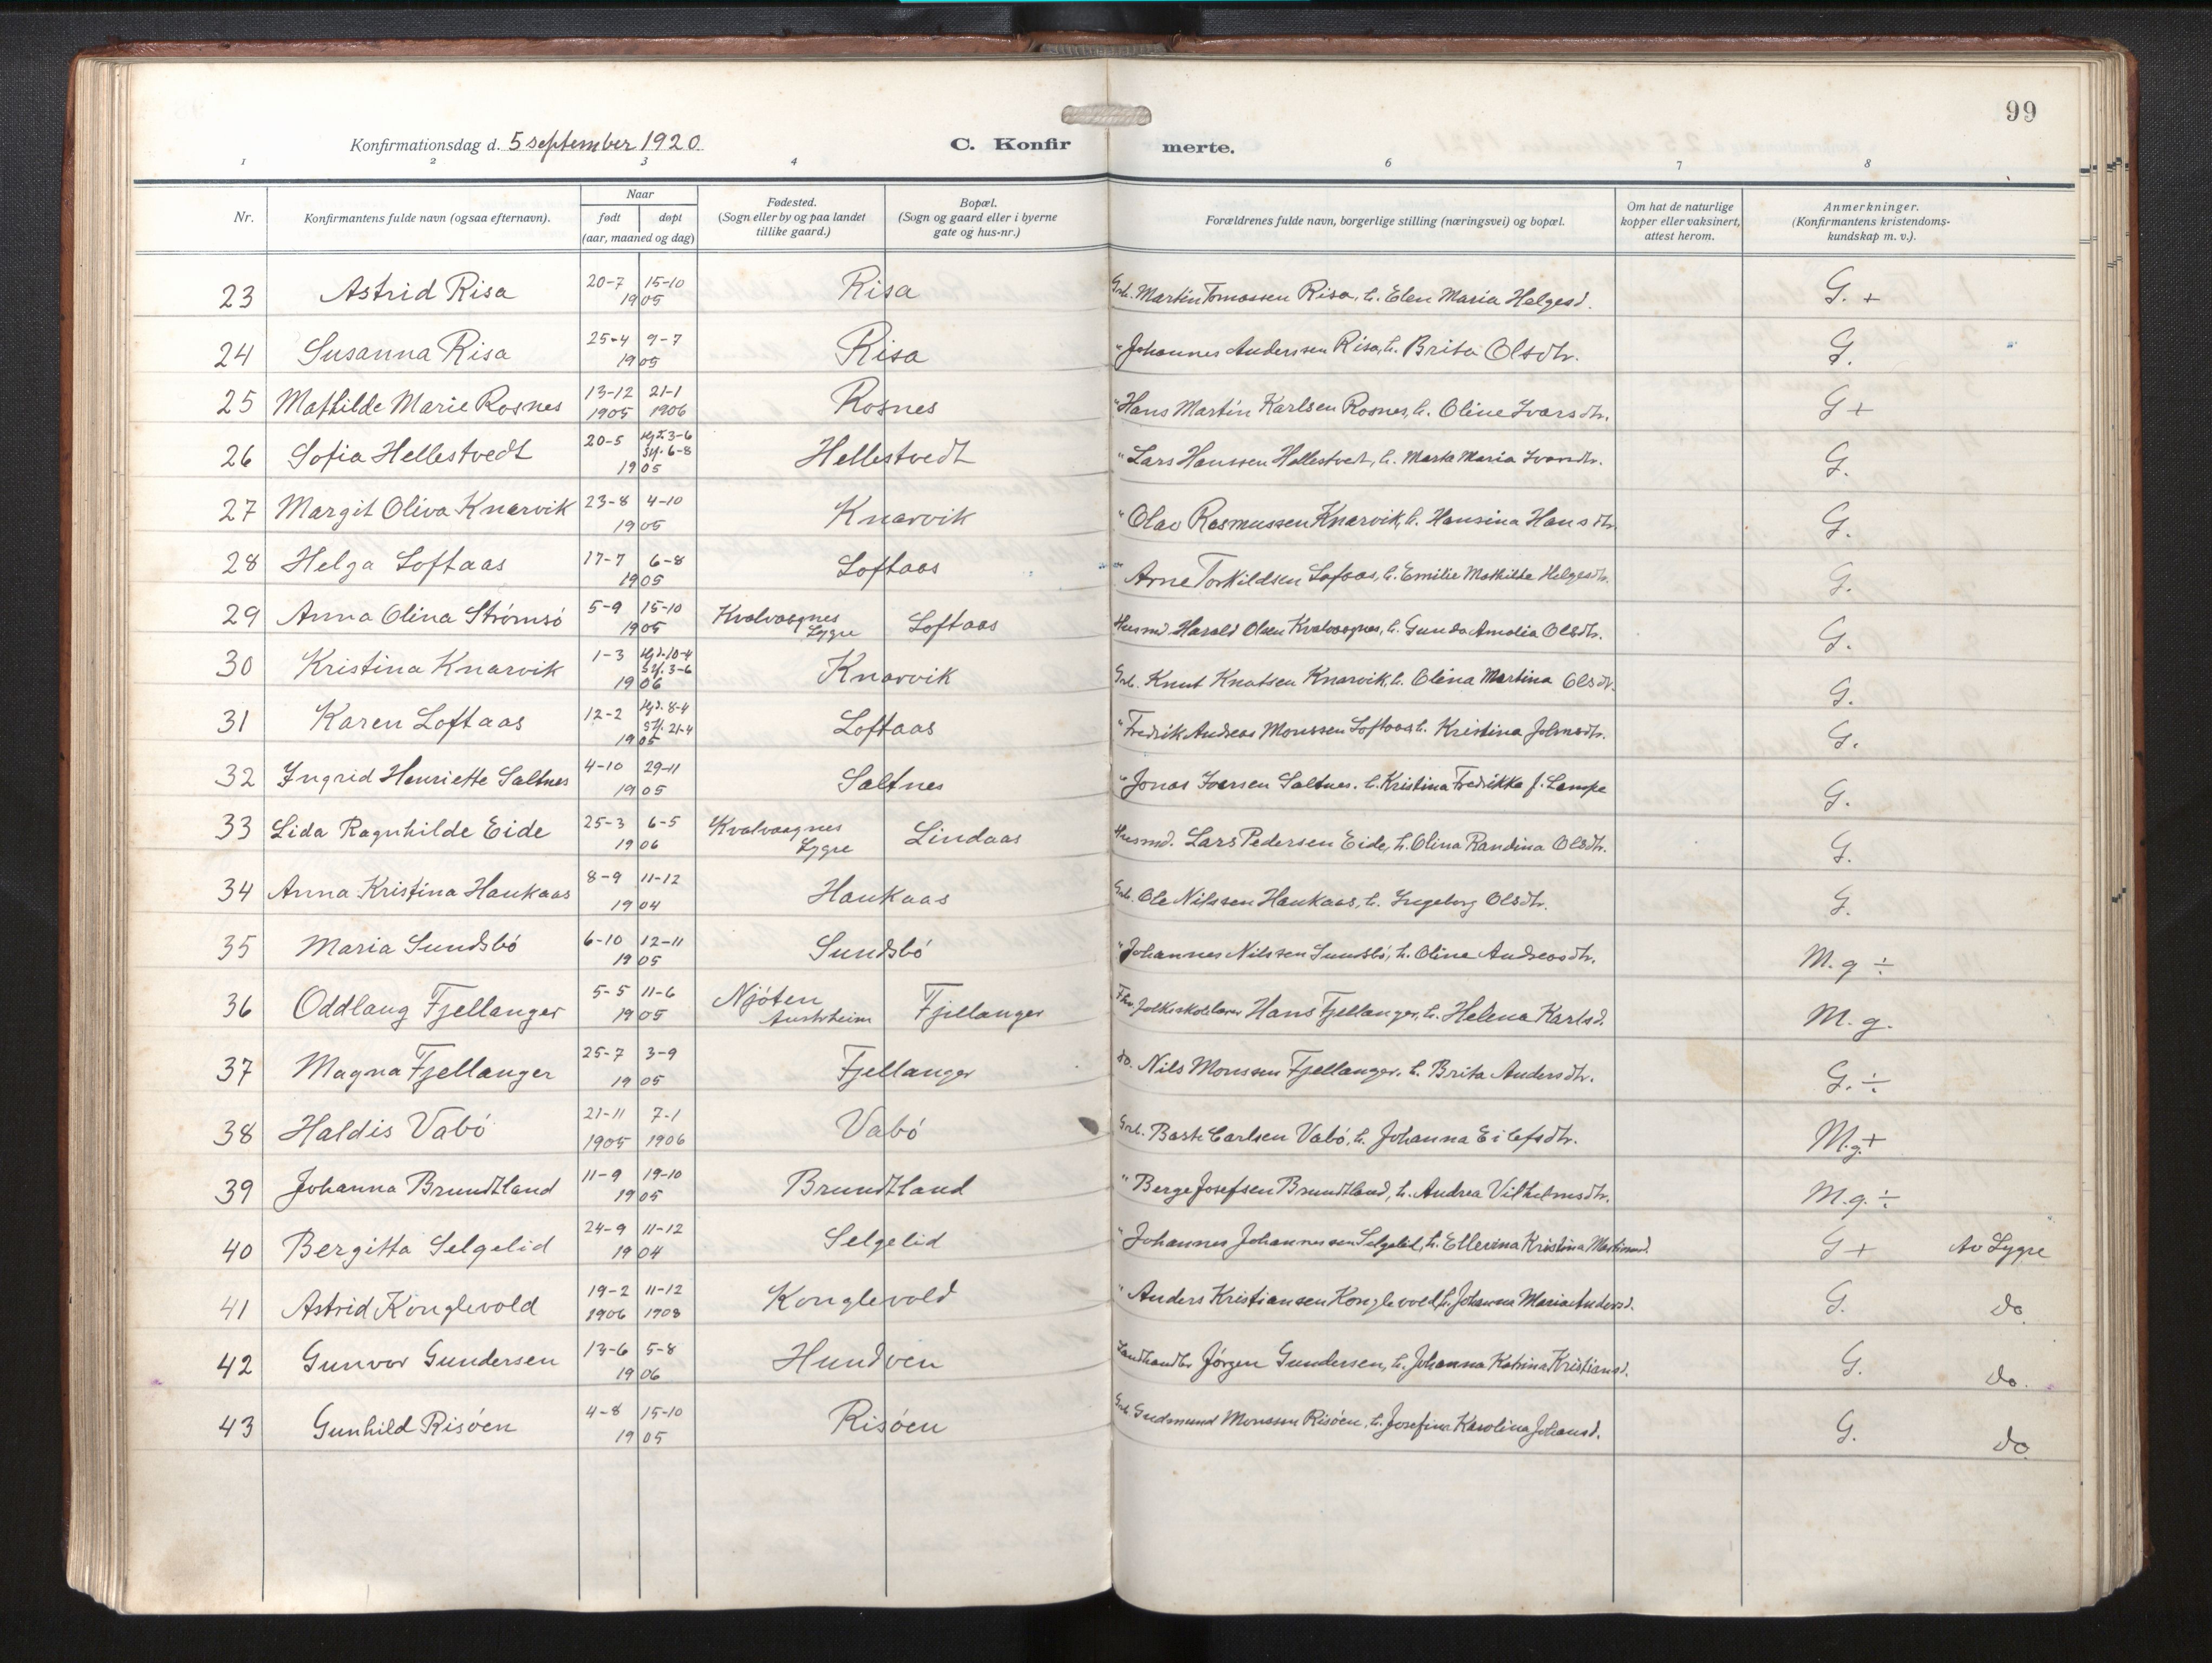 99
Konfirmationsdag d. 5 september 1920
C. Konfirmerte.
1 2 3 4 6 7 8
Nr.
Konfirmantens fulde navn (ogsaa efternavn).
Naar
født døpt
(aar, maaned og dag)
Fødested.
(Sogn eller by og paa landet
tillike gaard.)
Bopæl.
(Sogn og gaard eller i byerne
gate og hus-nr.)
Forældrenes fulde navn, borgerlige stilling (næringsvei) og bopæl.
Om hat de naturlige
kopper eller vaksinert,
attest herom.
Anmerkninger.
(Konfirmantens kristendoms-
kundskap m. v.).
23 Astrid Risa 20-7 15-10 1905 Risa Grb. Martin Tomassen Risa, h. Elen Maria Helgesd. G. +
24 Susanna Risa 25-4 9-7 1905 Risa " Johannes Anderssen Risa, h. Brita Olsdtr. G.
25 Mathilde Marie Rosnes 13-12 1905 21-1 1906 Rosnes " Hans Martin Karlsen Rosnes, h. Oline Ivarsdtr. G +
26 Sofia Hellestvedt 20-5 Hjd. 3-6 Stf. 6-8 1905 Hellestvedt " Lars Hanssen Hellestvedt, h. Marta Maria Ivarsdtr. G.
27 Margit Oliva Knarvik 23-8 4-10 1905 Knarvik " Olav Rasmussen Knarvik, h. Hansina Hansdtr. G.
28 Helga Loftaas 17-7 6-8 1905 Loftaas " Arne Torkildsen Loftaas, h. Emilie Mathilde Helgesdtr. G.
29 Anna Olina Strømsö 5-9 15-10 1905 Kvalvaagnes Lygre Loftaas Husmd. Harald Olsen Kvalvaagnes, h. Gunda Amalia Olsdtr. G.
30 Kristina Knarvik 1-3 Hjd. 10-4 Stf. 3-6 1906 Knarvik Grb. Knut Knutsen Knarvik, h. Olina Martina Olsdtr. G.
31 Karen Loftaas 12-2 Hjd. 8-4 Stf. 21-4 1905 Loftaas " Fredrik Andreas Monssen Loftaas, h. Kristina Johnsdtr. G.
32 Ingrid Henriette Saltnes 4-10 29-11 1905 Saltnes " Jonas Iversen Saltnes, h. Kristina Fredrikke f. Lampe G.
33 Lida Ragnhilde Eide 25-3 6-5 1906 Kvalvaagnes Lygre Lindaas Husmd. Lars Pedersen Eide, h. Olina Randina Olsdtr. G.
34 Anna Kristina Haukaas 8-9 11-12 1904 Haukaas Grb. Ole Nilssen Haukaas, h. Ingeborg Olsdtr. G.
35 Maria Sundsbö 6-10 12-11 1905 Sundsbö " Johannes Nilssen Sundsbö, h. Oline Andreasdtr. M. g ÷
36 Oddlaug Fjellanger 5-5 11-6 1905 Njöten Austrheim Fjellanger Fhv. folkeskolelærer Hans Fjellanger, h. Helena Karlsd. M. g.
37 Magna Fjellanger 25-7 3-9 1905 Fjellanger do. Nils Monssen Fjellanger, h. Brita Andersdtr. G. ÷
38 Haldis Vabö 21-11 1905 7-1 1906 Vabö Grb. Carlsen Vabö, h. Johanna Eilefsdtr. M.g. +
39 Johanna Brundtland 11-9 19-10 1905 Brundtland " Berge Josefsen Brundtland, h. Andrea Vilhelmsdtr. M.g. ÷
40 Bergitta Selgelid 24-9 11-12 1904 Selgelid " Johannes Johannessen Selgelid, h. Ellevina Kristina Martinsd. G + Av Lygre
41 Astrid Konglevold 19-2 1906 11-12 1908 Konglevold " Anders Kristiansen Konglevold, h. Johanna Maria Andersd. G. do.
42 Gunvor Gundersen 13-6 5-8 1906 Hundven Landhandler Jörgen Gundersen, h. Johanna Katrina Kristiansd. G. do.
43 Gunhild Risöen 4-8 15-10 1905 Risöen Grb. Gudmund Monssen Risöen, h. Josefine Karolina Johansd. G. do.